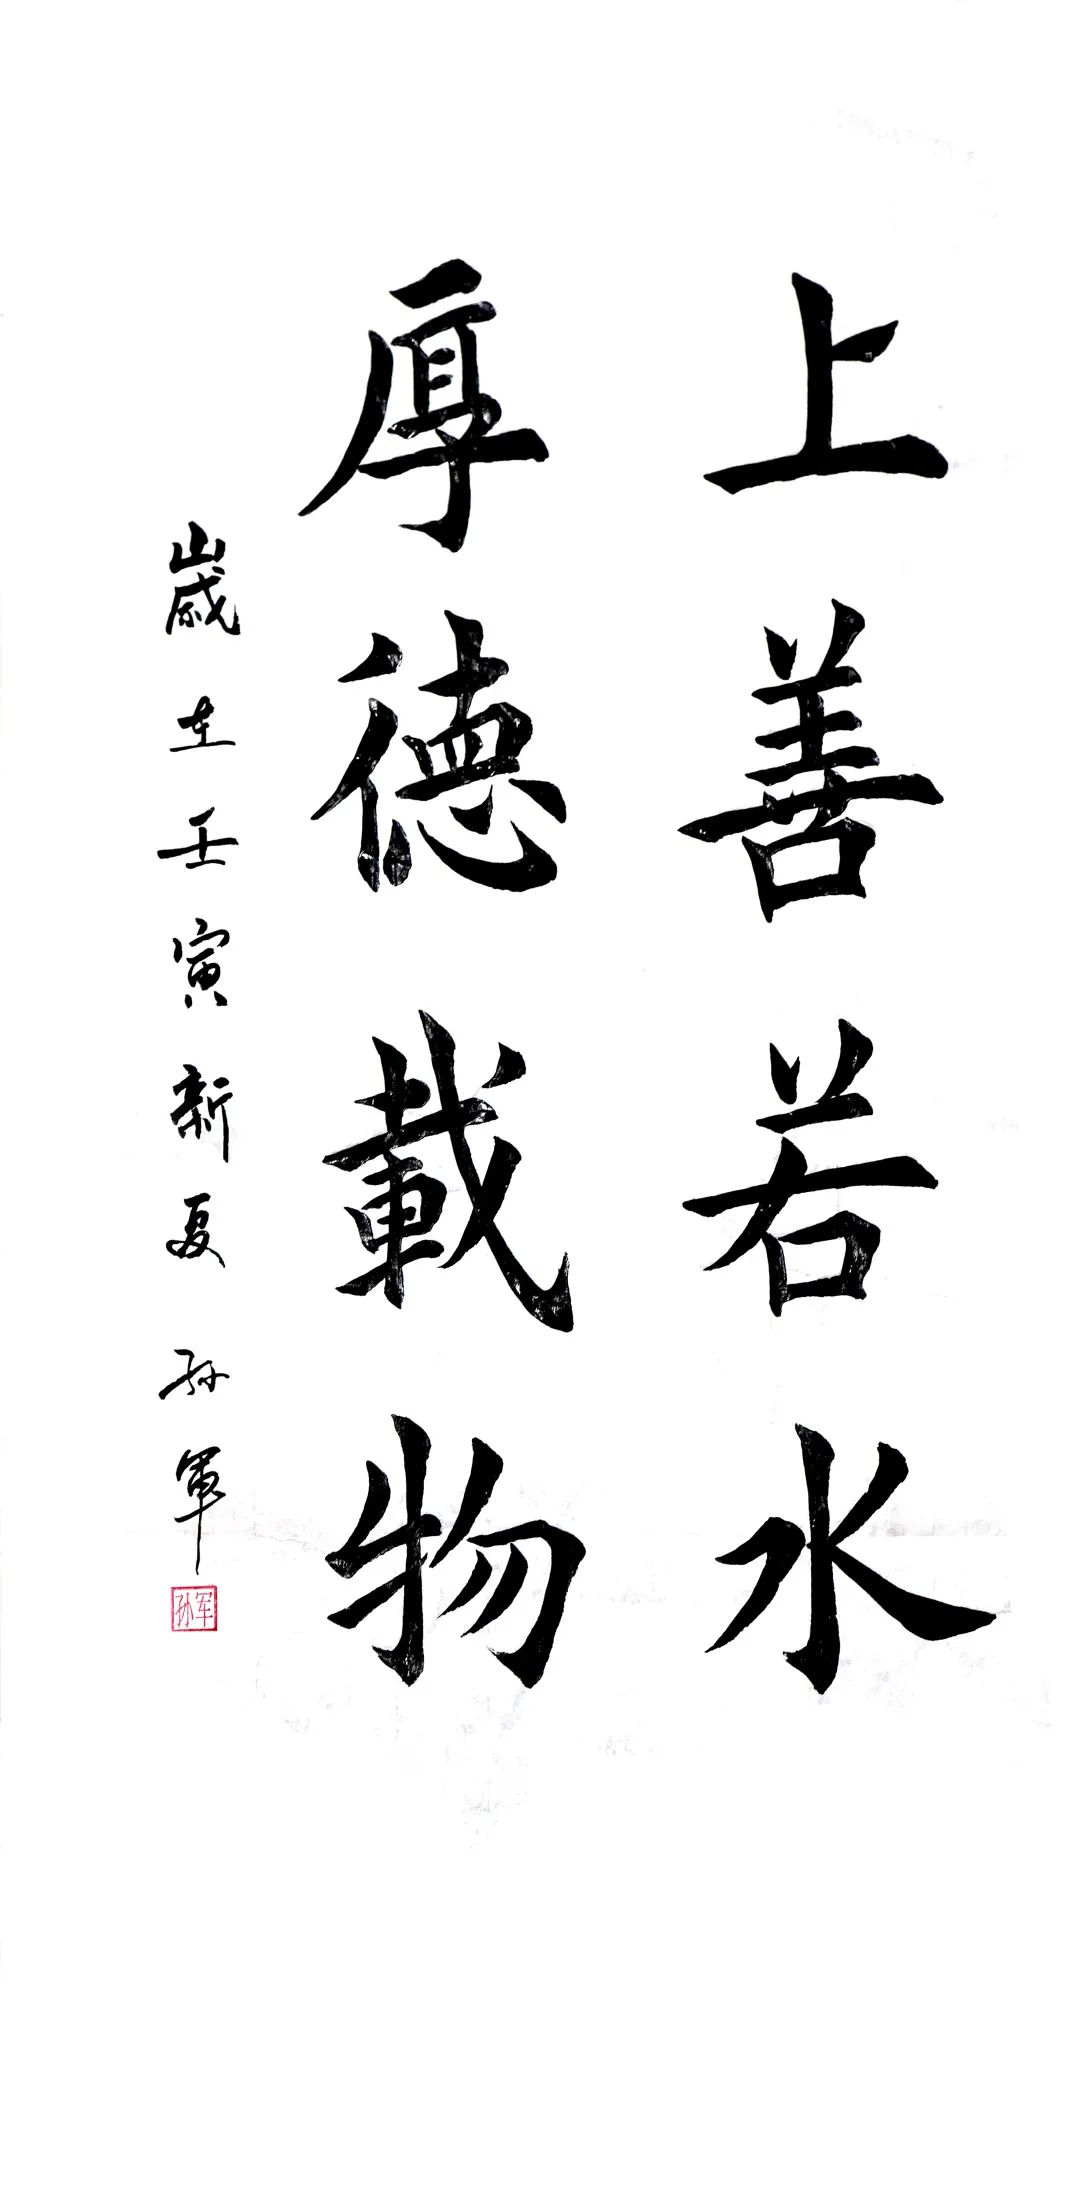 上善若水
厚德載物
歲在壬寅新夏孙軍
孙军